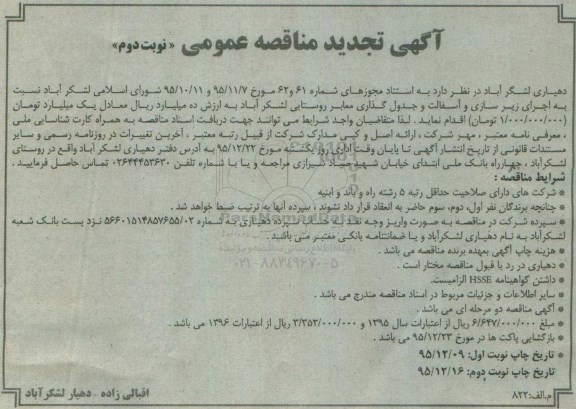 آگهی تجدید مناقصه عمومی « نوبت دوم»
دهیاری لشگر آباد در نظر دارد به استناد مجوزهای شماره ۶۱ و۶۲ مورخ ۹۵/۱۱/۷ و ۹۵/۱۰/۱۱ شورای اسلامی لشکر آباد نسبت
به اجرای زیر سازی و آسفالت و جدول گذاری معابر روستایی لشکر آباد به ارزش ده میلیارد ریال معادل یک میلیارد تومان
(۱/۰۰۰/۰۰۰/۰۰۰ تومان) اقدام نماید . لذا متقاضیان واجد شرایط می توانند جهت دریافت اسناد مناقصه به همراه کارت شناسایی ملی
، معرفی نامه معتبر ، مهر شرکت ، ارائه اصل و کپی مدارک شرکت از قبیل رتبه معتبر ، آخرین تغییرات در روزنامه رسمی و سایر
مستندات قانونی از تاریخ انتشار آگهی تا پایان وقت اداری روز یکشنبه مورخ ۹۵/۱۲/۲۲ به آدرس دفتر دهیاری لشکر آباد واقع در روستای
لشکرآباد ، چهارراه بانک ملی ابتدای خیابان شهید صیاد شیرازی مراجعه و یا با شماره تلفن ۰۲۶۴۴۴۵۳۶۳۰ تماس حاصل فرمایید .
شرایط مناقصه :
* شرکت های دارای صلاحیت حداقل رتبه ۵ رشته راه و باند و ابنیه
* چنانچه برندگان نفر اول، دوم، سوم حاضر به انعقاد قرار داد نشوند ، سپرده آنها به ترتیب ضبط خواهد شد .
* سپرده شرکت در مناقصه به صورت واریز وجه نقد به حساب سپرده دهیاری به شماره ۵۶۶۰۱۵۱۴۸۵۷۶۵۵/۰۲ نزد پست بانک شعبه
لشکرآباد به نام دهیاری لشکرآباد و یا ضمانتنامه بانکی معتبر می باشد .
* هزینه چاپ آگهی بعهده برنده مناقصه می باشد .
* دهیاری در رد یا قبول مناقصه مختار است .
* داشتن گواهینامه HSSE الزامیست.
* سایر اطلاعات و جزئیات مربوط در اسناد مناقصه مندرج می باشد .
* آگهی مناقصه دو مرحله ای می باشد .
* مبلغ ۶/۶۴۷/۰۰۰/۰۰۰ ریال از اعتبارات سال ۱۳۹۵ و ۳/۳۵۳/۰۰۰/۰۰۰ ریال از اعتبارات ۱۳۹۶ می باشد .
* بازگشایی پاکت ها در مورخ ۹۵/۱۲/۲۳ می باشد .
* تاریخ چاپ نوبت اول: ۹۵/۱۲/۰۹
تاریخ چاپ نوبت دوم: ۹۵/۱۲/۱۶
اقبالی زاده - دهیار لشکرآباد
م.الف: ۸۲۲
۰۲۱-۸۸۳۴۹۶۷۰-۵